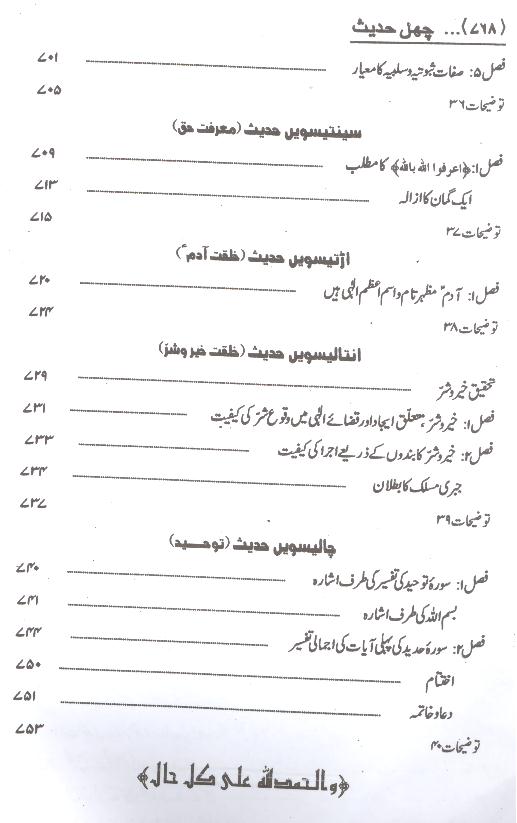 (۷۶۸)... چھل حدیث
فصل ۵: صفات ثبوتیہ و سلبیہ کا معیار ۷۰۱
توضیحات ۳۶ ۷۰۵
سینتیسویں حدیث (معرفت حق)
فصل ۱: ﴿اعرفوا الله بالله﴾ کا مطلب ۷۰۹
ایک گمان کا ازالہ ۷۱۳
توضیحات ۳۷ ۷۱۵
اڑتیسویں حدیث (خلقت آدمؑ)
فصل ۱: آدمؑ مظہر تام و اسم اعظم الٰہی ہیں ۷۲۰
توضیحات ۳۸ ۷۲۴
انتالیسویں حدیث (خلقت خیر و شرّ)
تحقیق خیر و شرّ ۷۲۹
فصل ۱: خیر و شرّ، متعلّق ایجاد اور قضائے الٰہی میں وقوع شرّ کی کیفیت ۷۳۱
فصل ۲: خیر و شرّ کا بندوں کے ذریعے اجرا کی کیفیت ۷۳۳
جبری مسلک کا بطلان ۷۳۴
توضیحات ۳۹ ۷۳۷
چالیسویں حدیث (توحید)
فصل ۱: سورۂ توحید کی تفسیر کی طرف اشارہ ۷۴۰
بسم اللہ کی طرف اشارہ ۷۴۱
فصل ۲: سورۂ حدید کی پہلی آیات کی اجمالی تفسیر ۷۴۴
اختتام ۷۵۰
دعا و خاتمہ ۷۵۱
توضیحات ۴۰ ۷۵۳
﴿والحمدلله علی کل حال﴾